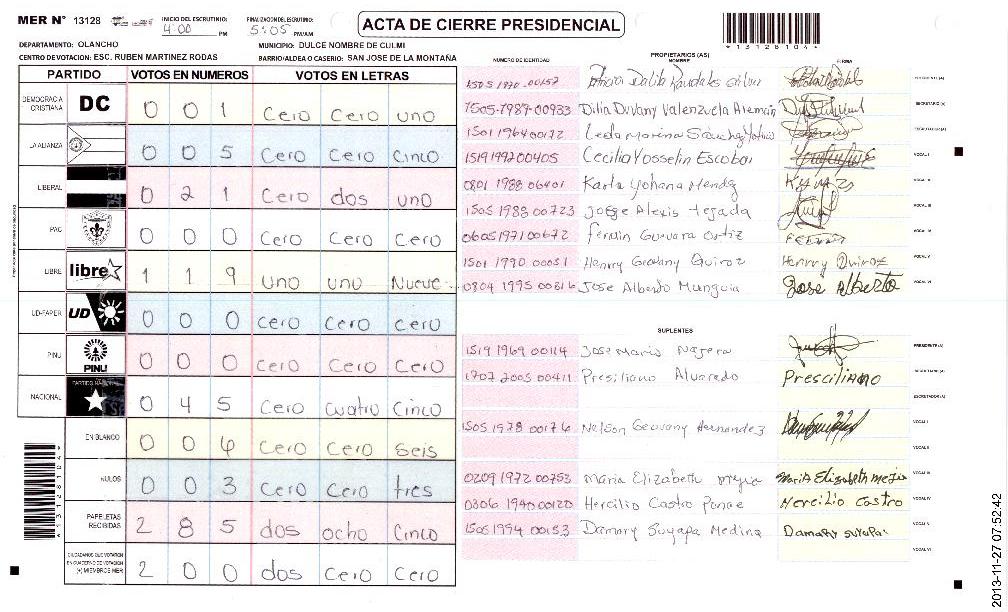 MER N° 13128
INICIO DEL ESCRUTINIO: 4:00 PM
FINALIZACIÓN DEL ESCRUTINIO: 5:05 PM/AM
ACTA DE CIERRE PRESIDENCIAL
*13128104*
DEPARTAMENTO: OLANCHO
MUNICIPIO: DULCE NOMBRE DE CULMI
CENTRO DE VOTACION: ESC. RUBEN MARTINEZ RODAS
BARRIO/ALDEA O CASERIO: SAN JOSE DE LA MONTAÑA
PARTIDO VOTOS EN NUMEROS VOTOS EN LETRAS
DEMOCRACIA CRISTIANA DC 0 0 1 Cero Cero uno
LA ALIANZA 0 0 5 Cero Cero Cinco
LIBERAL 0 2 1 Cero dos uno
PAC 0 0 0 Cero Cero Cero
LIBRE libre 1 1 9 uno uno Nueve
UD-FAPER UD 0 0 0 Cero Cero Cero
PINU PINU 0 0 0 Cero Cero Cero
NACIONAL PARTIDO NACIONAL 0 4 5 Cero cuatro Cinco
EN BLANCO 0 0 6 Cero Cero seis
NULOS 0 0 3 Cero Cero tres
PAPELETAS RECIBIDAS 2 8 5 dos ocho Cinco
CIUDADANOS QUE VOTARON EN CUADERNO DE VOTACION (+) MIEMBROS MER 2 0 0 dos Cero Cero
*13128104*
PROPIETARIOS (AS)
NUMERO DE IDENTIDAD NOMBRE FIRMA
1505 1990 00157 Dalila PRESIDENTE (A)
1505-1989-00933 Dilia Duvany Valenzuela Aleman SECRETARIO (A)
1501 1964 00172 Leda Marina Sanchez ESCRUTADOR (A)
1519 1992 00405 Cecilia Yosselin Escobar VOCAL I
0801 1988 06401 Karla Yohana Mendez VOCAL II
1505 1988 00723 Jorge Alexis Tejada VOCAL III
0605 1971 00672 Fermin Guevara Ortiz VOCAL IV
1501 1990 00051 Henrry Geovany Quiroz Henrry Quiroz VOCAL V
0804 1995 00616 Jose Alberto Munguia Jose Alberto VOCAL VI
SUPLENTES
1519 1969 00114 Jose Mario Najera PRESIDENTE (A)
1707 2005 00411 Presiliano Alvaredo Presciliano SECRETARIO (A)
ESCRUTADOR (A)
1505 1978 00176 Nelson Geovany Hernandez VOCAL I
VOCAL II
0209 1972 00753 Maria Elizabeth mejia Maria Elizabeth mejia VOCAL III
0306 1940 00120 Hercilio Castro Ponce Hercilio Castro VOCAL IV
1505 1994 00153 Damary Suyapa Medina Damary suyapa VOCAL V
VOCAL VI
2013-11-27 07:52:42